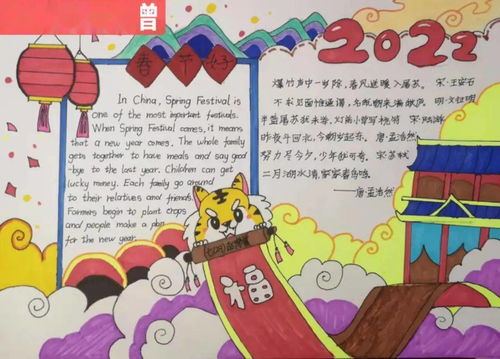 曾
春节好
2022
In China, Spring Festival is
one of the most important festivals.
When Spring Festival comes, it means
that a new year comes. The whole family
gets together to have meals and say good
-bye to the last year. Children can get
lucky money. Each family go around
to their relatives and friends.
Farmers begin to plant crops
and people make a plan
for the new year.
爆竹声中一岁除,春风送暖入屠苏. 宋·王安石
不求见面惟通谒,名纸朝来满敝庐. 明·文征明
半盏屠苏犹未举,灯前小草写桃符 宋·陆游
昨夜斗回北,今朝岁起东. 唐·孟浩然
努力尽今夕,少年犹可夸. 宋·苏轼
二月湖水清,家家春鸟鸣.
——唐·孟浩然
福